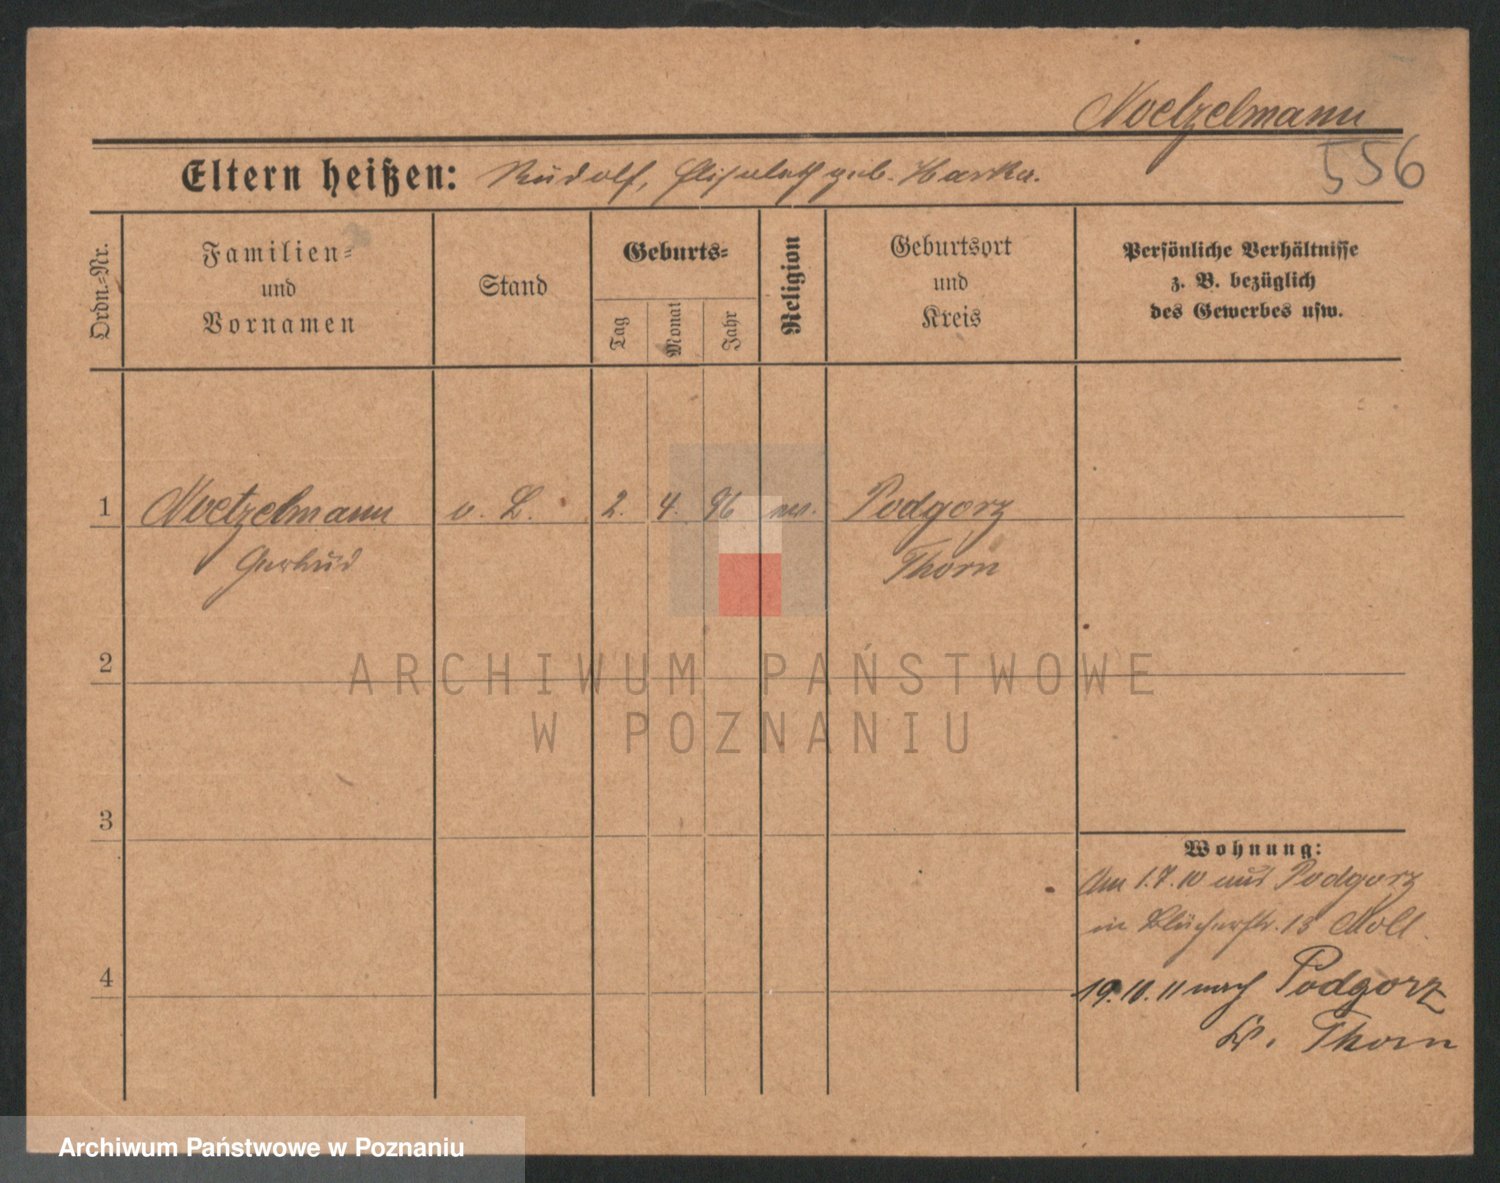 Noetzelmann
556
Eltern heißen: Rudolf, Elisabeth geb. Harka.
Ordn.-Nr.
Familien-
und
Vornamen
Stand
Geburts-
Tag
Monat
Jahr
Religion
Geburtsort
und
Kreis
Persönliche Verhältnisse
z. B. bezüglich
des Gewerbes usw.
1 Noetzelmann o. L. 2. 4. 96 ev. Podgorz
Gertrud Thorn
2
3
4
Wohnung:
Am 1.7.10 aus Podgorz
in Blücherstr. 13 Noll.
19.10.11 nach Podgorz
Kr. Thorn
ARCHIWUM PAŃSTWOWE
W POZNANIU
Archiwum Państwowe w Poznaniu